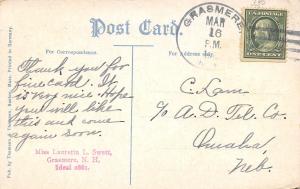 Post Card.
For Correspondence.
For Address only.
GRASMERE
MAR
16
P.M.
N.H.
Thank you for
fine card. It
is very nice. Hope
you will like
this and come
again soon.
Miss Lauretta L. Swett,
Grasmere, N. H.
Ideal
C. Lam
% A. D. Tel. Co.
Omaha,
Neb.
Pub. by Thomson & Thomson, Boston, Mass. Printed in Germany.
ONE CENT